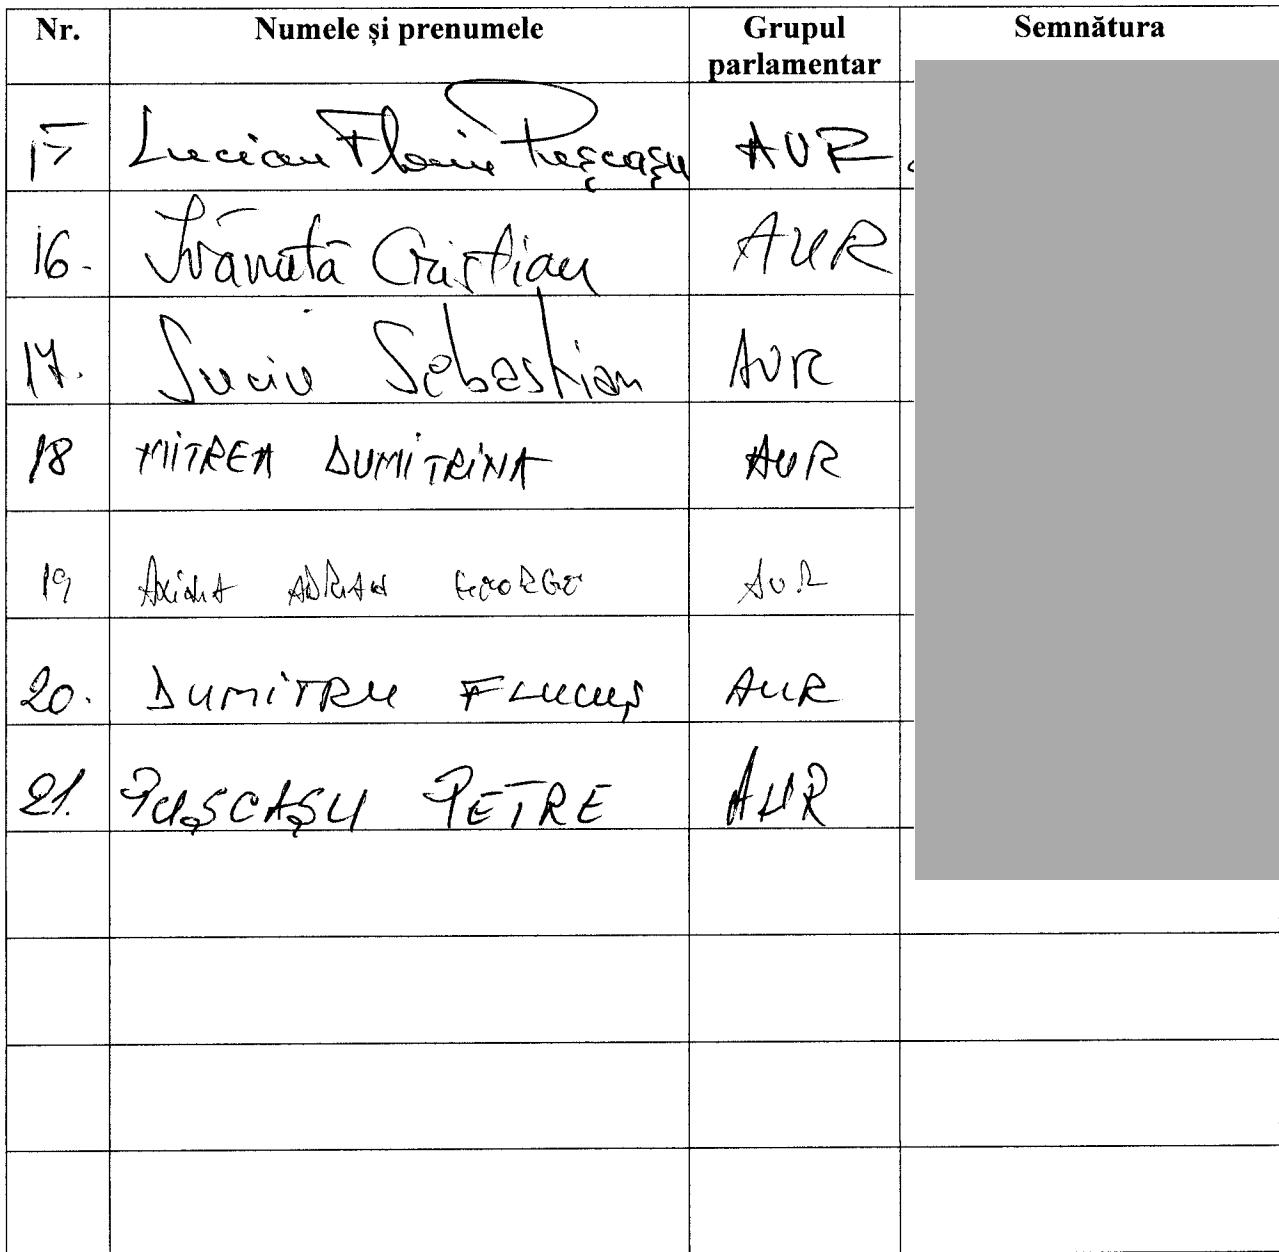 Nr. Numele și prenumele Grupul parlamentar Semnătura
15 Lucian Florin Pușcașu AUR
16. Ivănuță Cristian AUR
17. Suciu Sebastian AUR
18 MITREA DUMITRINA AUR
19 AXINIA ADRIAN GEORGE AUR
20. DUMITRU FLUCUȘ AUR
21. PUȘCAȘU PETRE AUR